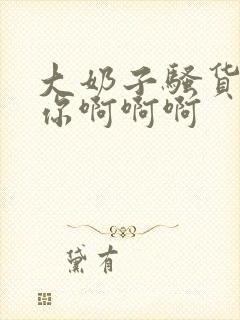 大奶子骚货
你啊啊啊
黛有